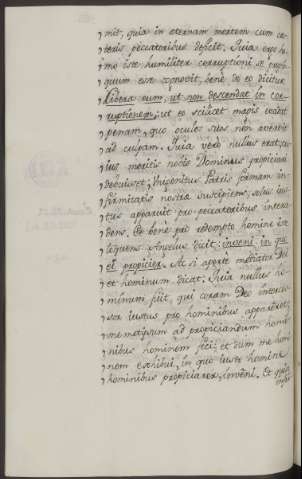 mit, quia in eternam mortem cum ce-
teris peccatoribus dejicit. Quia ergo ho-
mo iste humiliter corruptioni se
quum esse cognovit, bene de eo dicitur
Libera eum, ut non descendat in cor-
ruptionem; ut eo scilicet magis evadat
penam, quo oculos suos non avertit
ad culpam. Quia vero nullus erat, cu-
ius meritis nobis Dominus propitiari
debuisset; Unigenitus Patris formam in-
firmitatis nostrae suscipiens, solus ius-
tus apparuit pro peccatoribus interce-
dens. Et bene pro redempto homine iste
Angelus dicit: inveni in quo
ei propicier. Ac si aperte mediator Dei
et hominum dicat: Quia nullus ho-
minum fuit, qui coram Deo interces-
sor iustus pro hominibus appareret;
memetipsum ad propiciandum homi-
nibus hominem feci: et dum me homi-
nem exhibui, in quo iuste homine
hominibus propiciarer, inveni. Et quia